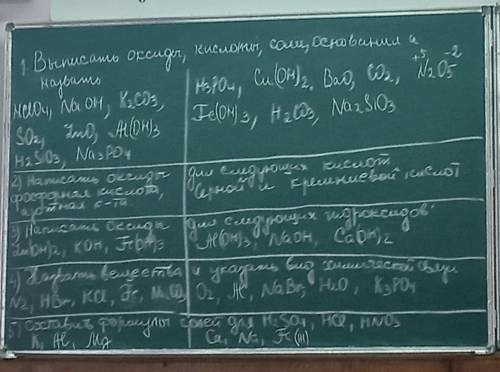 1. Выписать оксиды, кислоты, соли, основания и
назвать
HClO4, NaOH, K2CO3,
SO2, ZnO, Al(OH)3
H2SiO3, Na3PO4
H3PO4, Cu(OH)2, BaO, CO2, N2O5
+5 -2
Fe(OH)3, H2CO3, Na2SiO3
2) Написать оксиды
фосфорная кислота,
азотная к-та
для следующих кислот
серной и кремниевой кислот
3) Написать оксиды
Zn(OH)2, KOH, Fe(OH)3
для следующих гидроксидов:
Al(OH)3, NaOH, Ca(OH)2
4) Назвать вещества и указать вид химической связи
N2, HBr, KCl, Fe,
O2, Al, NaBr, H2O, K3PO4
5) Составить формулы солей для H2SO4, HCl, HNO3
K, Al, Mg
Ca, Na, Fe(III)